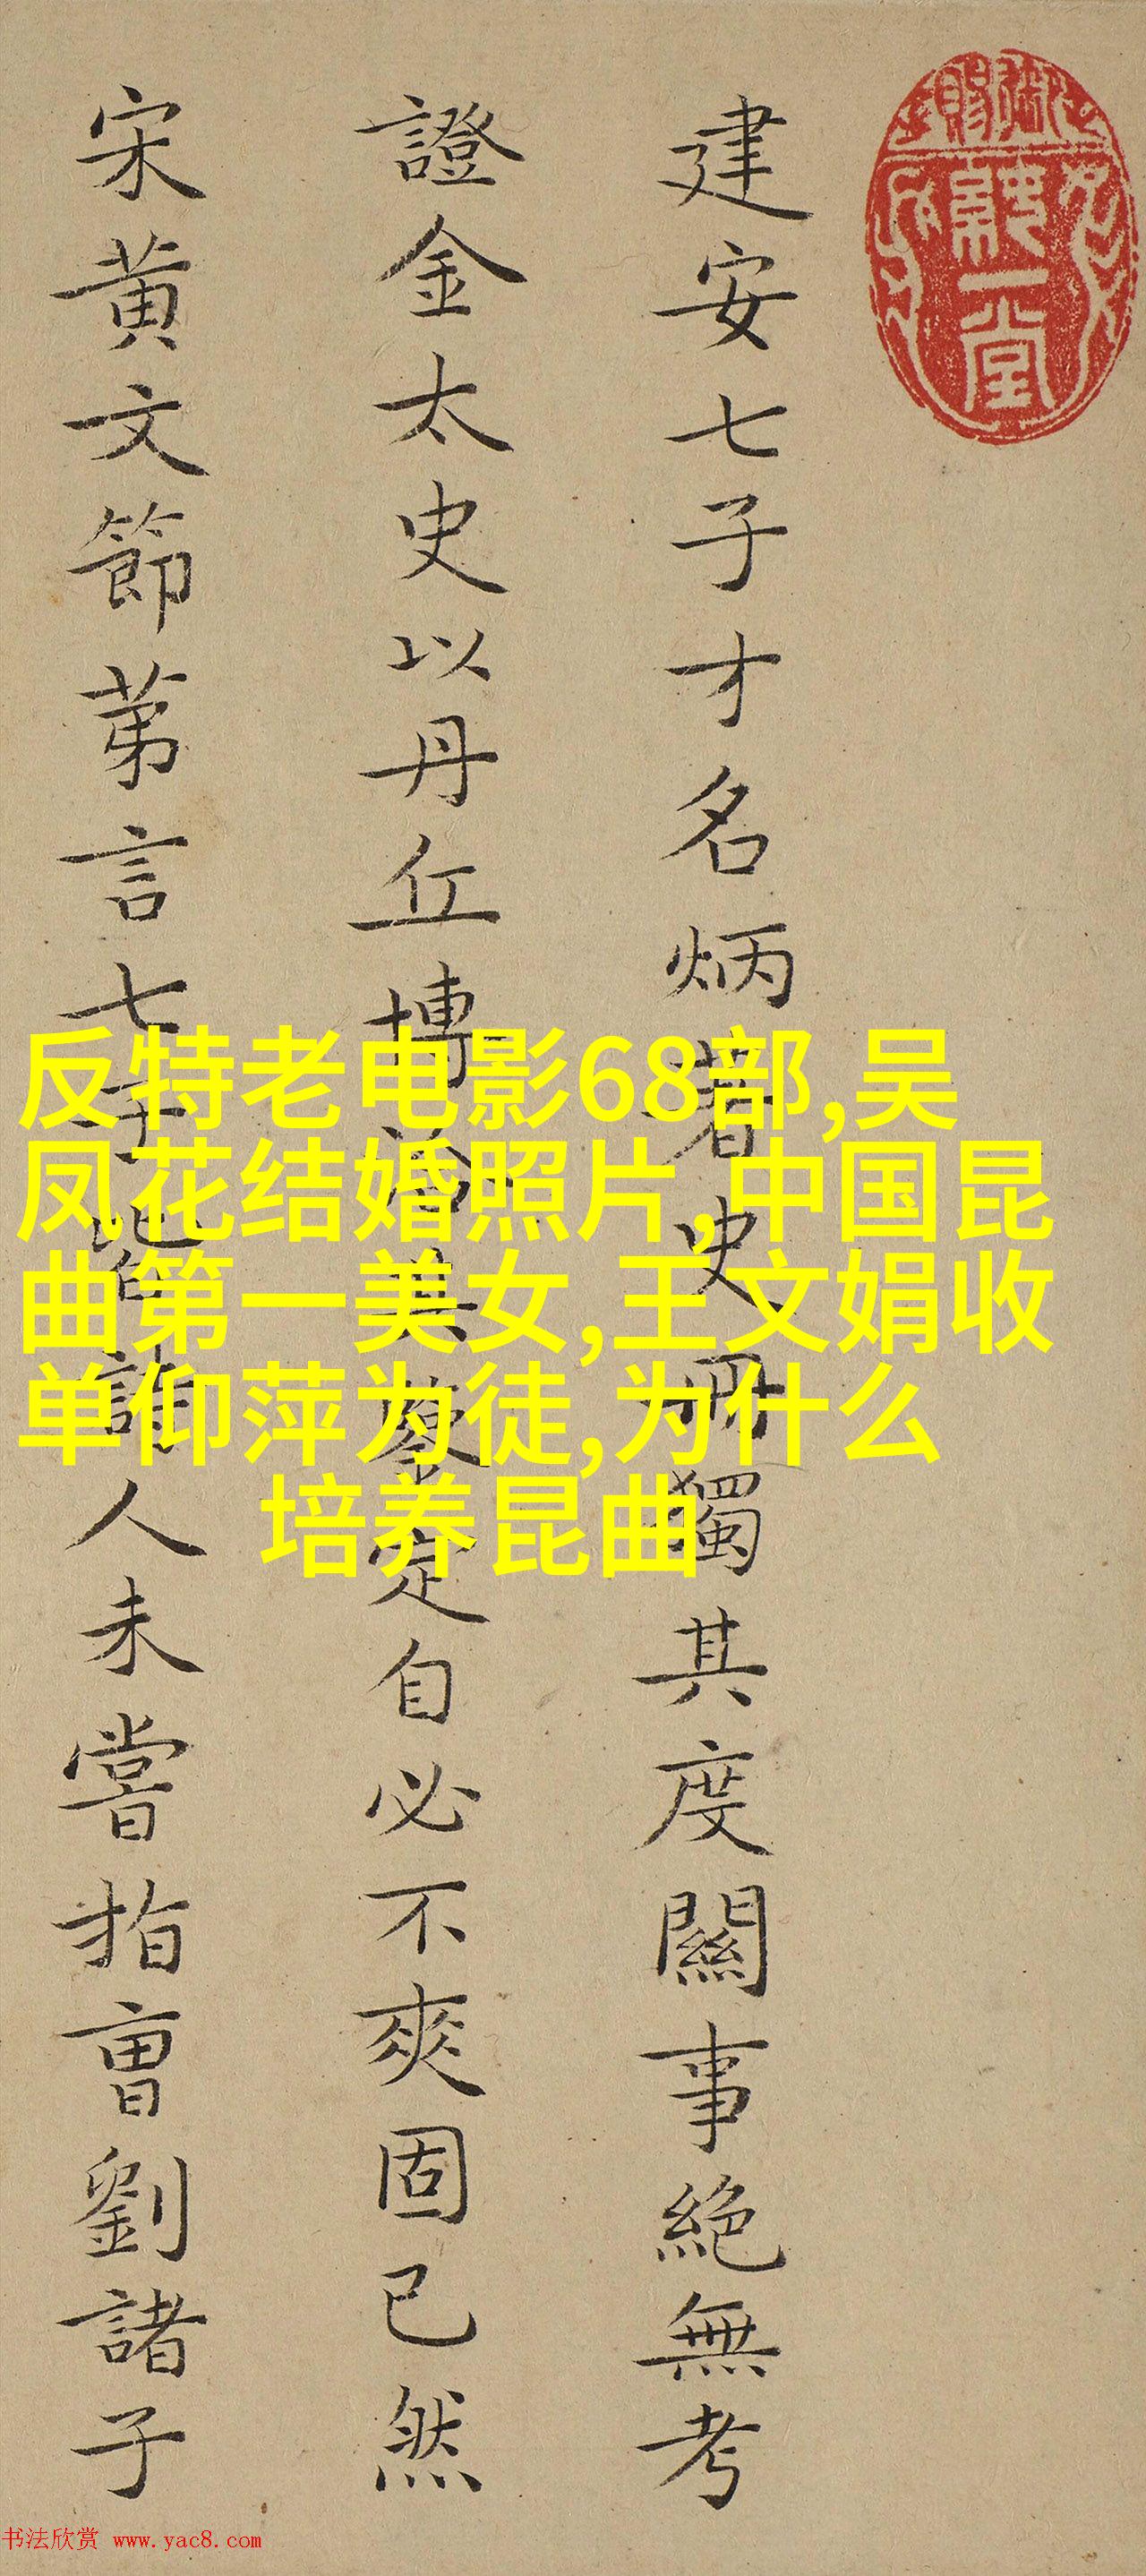 建安七子才名炳著史冊獨其度關事絕無考
證金太史以丹丘博洽美鑒定自必不爽固已然
宋黃文節苐言七子皆詣人未嘗指曹劉諸子
反特老电影68部,吴
凤花结婚照片,中国昆
曲第一美女,王文娟收
单仰萍为徒,为什么
培养昆曲
书法欣赏 www.yac8.com